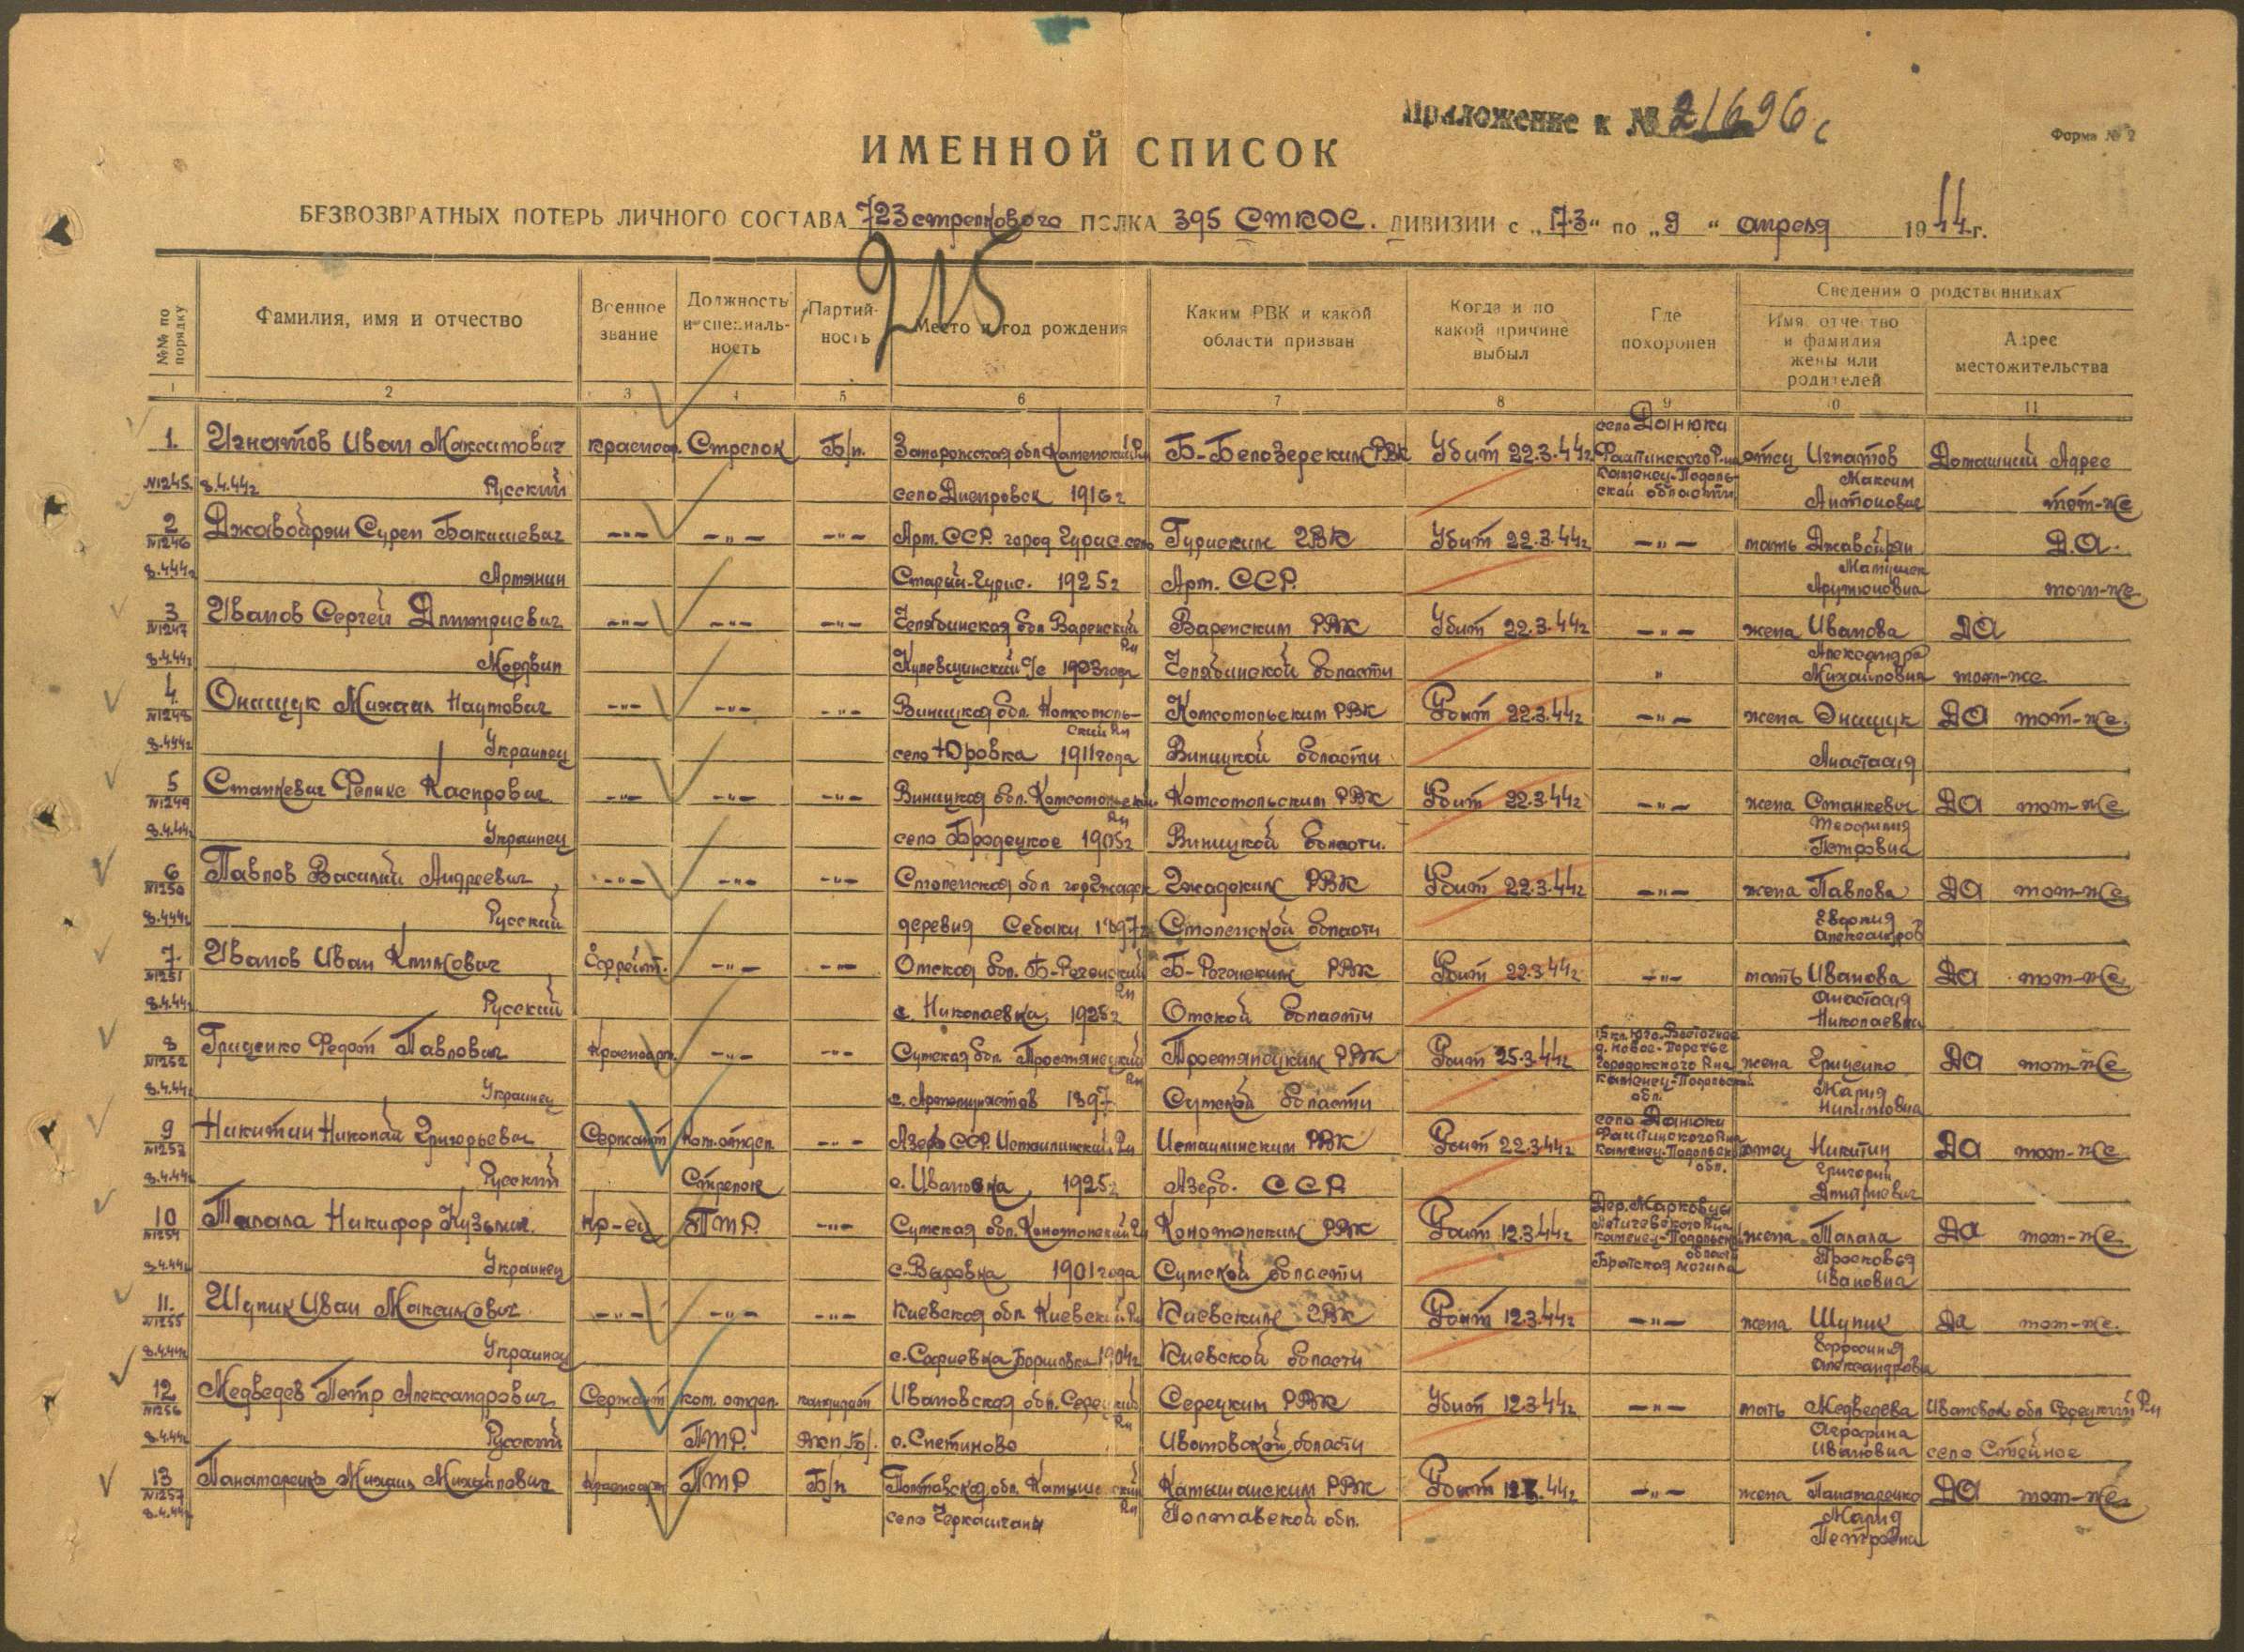 Приложение к № 21696с
Форма № 2
ИМЕННОЙ СПИСОК
БЕЗВОЗВРАТНЫХ ПОТЕРЬ ЛИЧНОГО СОСТАВА 723 стрелкового ПОЛКА 395 СТКОС. ДИВИЗИИ с „17.3“ по „9“ апреля 1944 г.
215
№№ по порядку
Фамилия, имя и отчество
Военное звание
Должность и специальность
Партийность
Место и год рождения
Каким РВК и какой области призван
Когда и по какой причине выбыл
Где похоронен
Сведения о родственниках
Имя, отчество и фамилия жены или родителей
Адрес местожительства
1 2 3 4 5 6 7 8 9 10 11
село Данюки
1. Игнатов Иван Максимович красноар. Стрелок Б/п. Запорожская обл. Каменский Р-н Б-Белозерским РВК Убит 22.3.44г Фаитинского Р-на отец Игнатов Домашний Адрес
Каменец-Подоль- Максим
№1245 8.4.44г Русский село Днепровск 1916г ской области Антонович тот-же
2 Джавойрян Сурен Бакишевич -"- -"- -"- Арм. ССР. город Гурис село Гуриским ГВК Убит 22.3.44г -"- мать Джавойрян Д.А.
№1246 Матушек
8.4.44г Армянин Старый-Гурис. 1925г Арм. ССР. Арутюновна тот-же
3 Иванов Сергей Дмитриевич -"- -"- -"- Челябинская обл. Варенский Р-н Варенским РВК Убит 22.3.44г -"- жена Иванова ДА
№1247 Александра
8.4.44г Мордвин Кулевчинский с/с 1903года Челябинской области " Михайловна тот-же
4. Онищук Михаил Наумович -"- -"- -"- Виницкая обл. Комсомоль- Комсомольским РВК Убит 22.3.44г -"- жена Онищук ДА тот-же.
№1248 ский Р-н
8.4.44г Украинец село Юровка 1911года Виницкой области Анастасия
5 Станкевич Феликс Каспрович -"- -"- -"- Виницкая обл. Комсомольский Р-н Комсомольским РВК Убит 22.3.44г -"- жена Станкевич ДА тот-же
№1249 Теофилия
8.4.44г Украинец село Бродецкое 1905г Виницкой области. Петровна
6 Павлов Василий Андреевич -"- -"- -"- Смоленская обл. гор Гжадск Гжадским РВК Убит 22.3.44г -"- жена Павлова ДА тот-же
№1250 Евдокия
8.4.44г Русский деревня Себаки 1897г Смоленской области Александров
7. Иванов Иван Климович Ефрейт. -"- -"- Омская обл. Б-Реченский Р-н Б-Роченским РВК Убит 22.3.44г -"- мать Иванова ДА тот-же
№1251 Анастасия
8.4.44г Русский с. Николаевка, 1925г Омской области Николаевна
15 км. Юго-Восточнее
д. Новое-Поречье
8 Гриценко Федот Павлович Красноарм. -"- -"- Сумская обл. Тростянецкий Р-н Тростянецким РВК Убит 25.3.44г Городокского Р-на жена Гриценко ДА тот-же
№1252 Каменец-Подольской Мария
8.4.44г Украинец 1897 Сумской области обл. Никитовна
село Данюки
9 Никитин Николай Григорьевич Сержант Ком.отдел. -"- Азерб ССР. Исмаилинский Р-н Исмаилинским РВК Убит 22.3.44г Фаитинского Р-на отец Никитин ДА тот-же
№1253 Каменец-Подольск Григорий
8.4.44г Русский Стрелок с. Ивановка, 1925г Азерб. ССР обл. Дмитриевич
Дер. Марковцы
10 Талала Никифор Кузьмич Кр-ец ПТР. -"- Сумская обл. Конотопский Р-н Конотопским РВК Убит 12.3.44г Летичевского Р-на жена Талала ДА тот-же
№1254 Каменец-Подольск области Просковья
8.4.44г Украинец с. Выровка 1901года Сумской области Братская могила Ивановна
11. Шулик Иван Максимович -"- -"- -"- Киевская обл Киевский Р-н Киевским ГВК Убит 12.3.44г -"- жена Шулик Да тот-же.
№1255 Евросиния
8.4.44г Украинец с. Софиевка Борщовка 1904г Киевской области Александровна
12 Медведев Петр Александрович Сержант ком. отдел. кандидат Ивановская обл. Середский Р-н Серецким РВК Убит 12.3.44г -"- мать Медведева Ивановск обл Серецкий Р-н
№1256 Аграфина
8.4.44г Русский ПТР. ВКП/б/. с. Снетиново Ивановской области Ивановна село Стейное
13 Панамаренко Михаил Михайлович Красноарм ПТР Б/п Полтавская обл. Камышанский Р-н Камышанским РВК Убит 12.3.44г -"- жена Панамаренко ДА тот-же
№1257 Мария
8.4.44г село Черкащаны Полтавской обл. Петровна